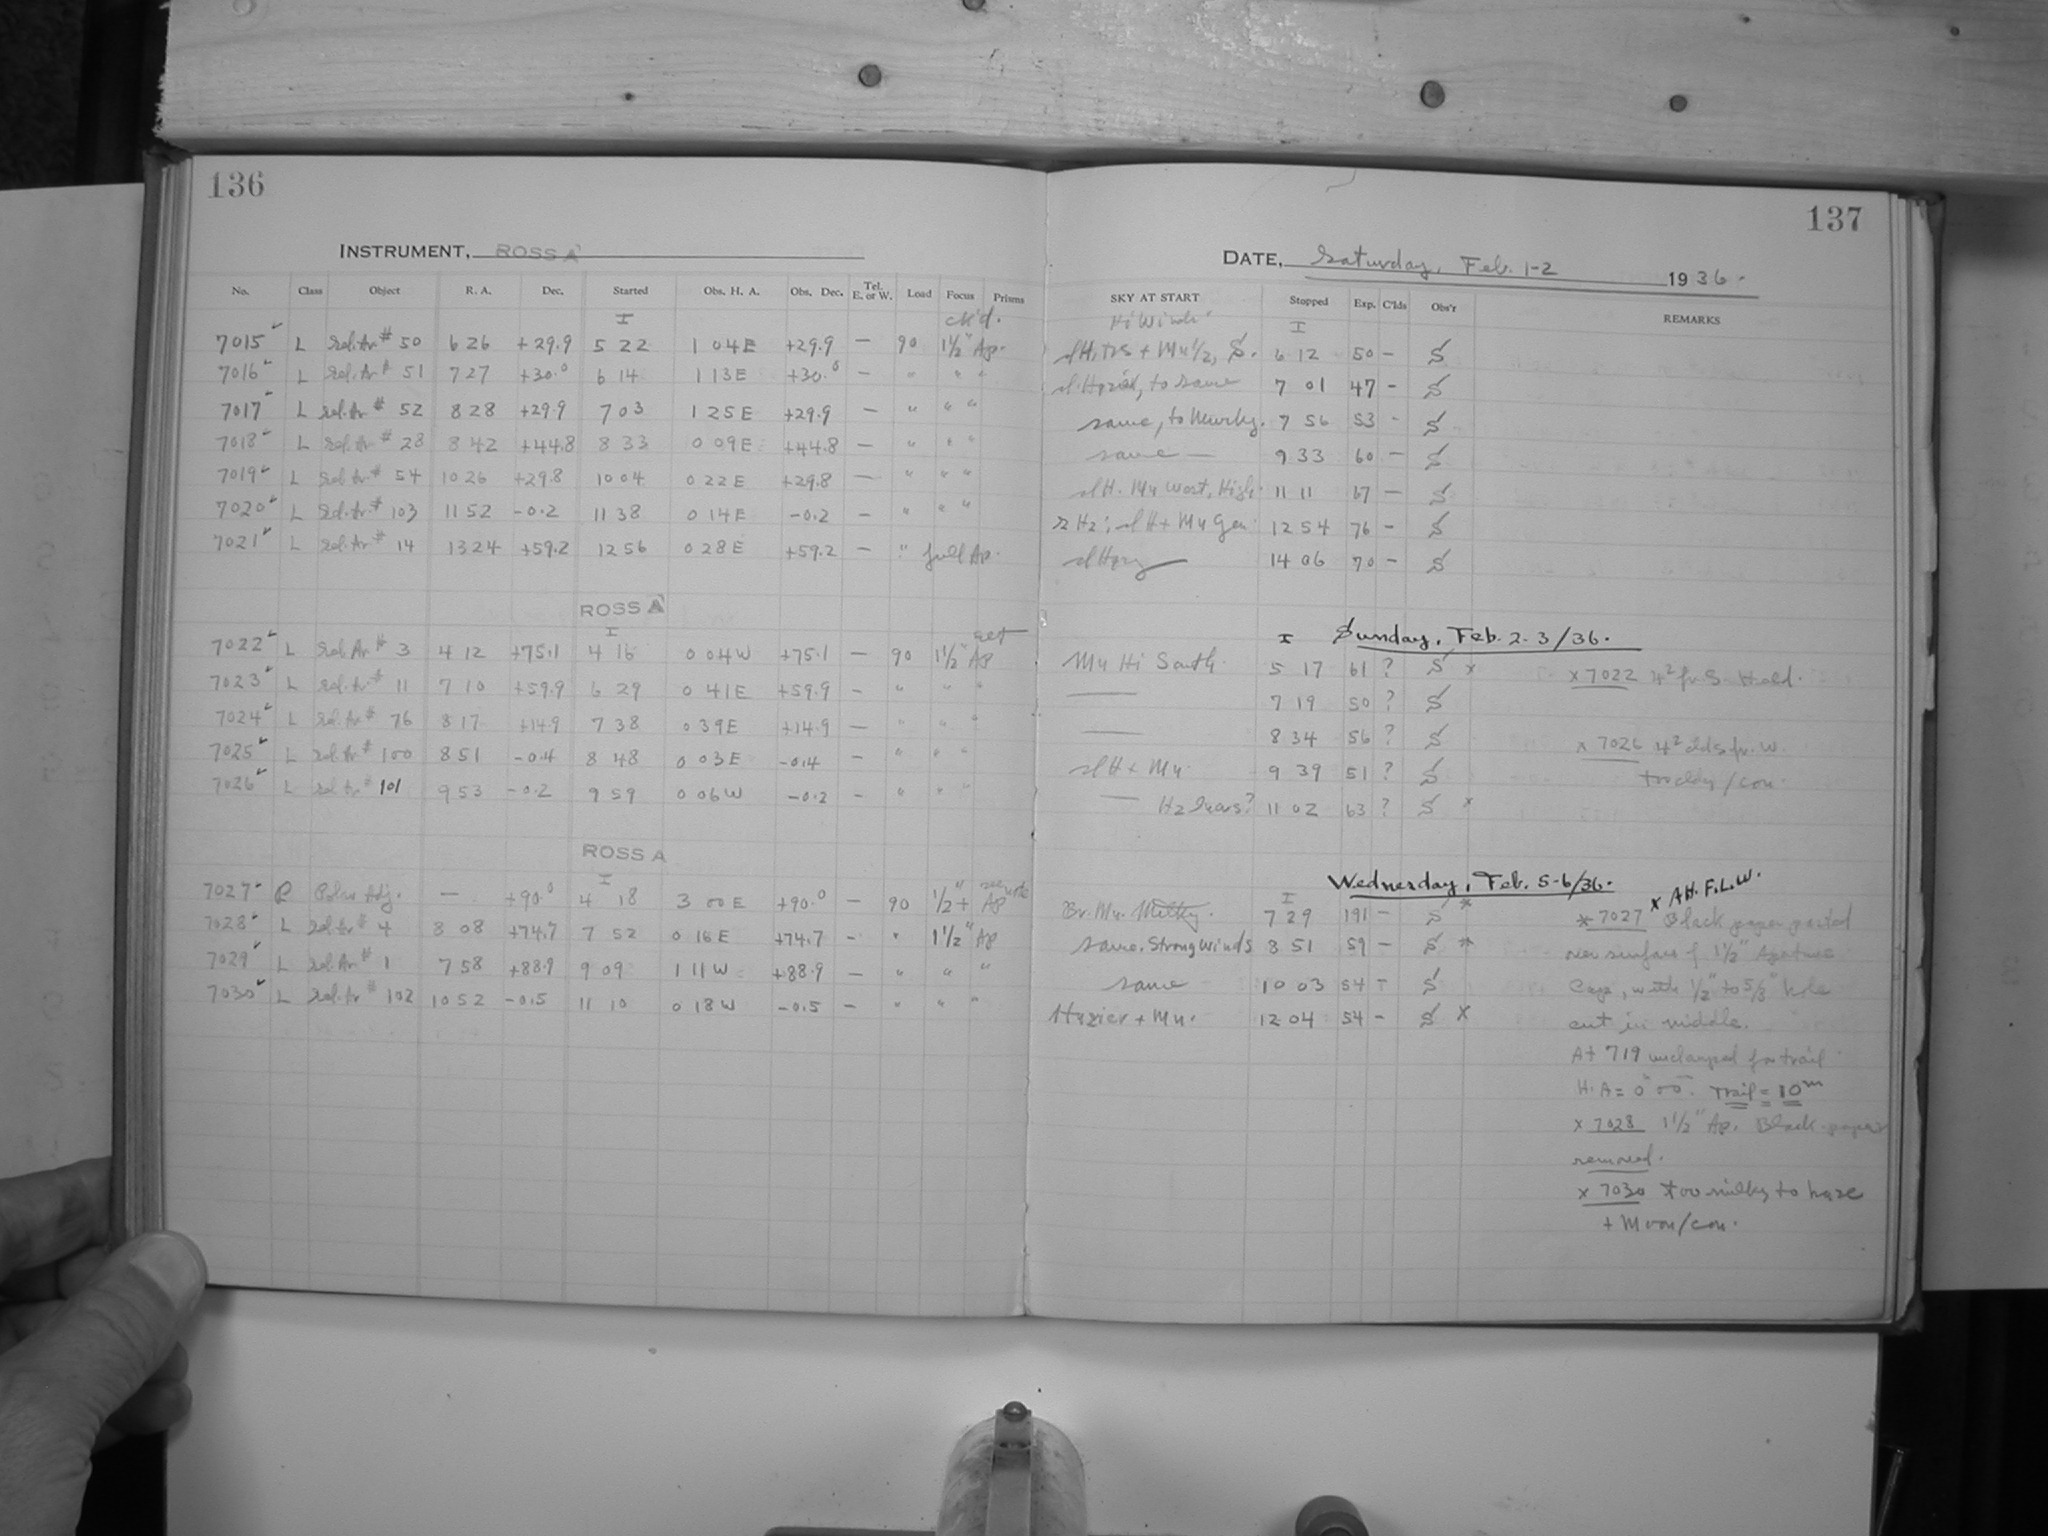 136
INSTRUMENT, ROSS A
No. Class Object R. A. Dec. Started Obs. H. A. Obs. Dec. Tel. E. or W. Load Focus Prisms
I ck'd.
7015 L Sel. Ar # 50 6 26 +29.9 5 22 1 04 E +29.9 — 90 1½" Ap.
7016 L Sel. Ar # 51 7 27 +30.0 6 14 1 13 E +30.0 — " " "
7017 L Sel. Ar # 52 8 28 +29.9 7 03 1 25 E +29.9 — " " "
7018 L Sel. Ar # 28 8 42 +44.8 8 33 0 09 E +44.8 — " " "
7019 L Sel. Ar # 54 10 26 +29.8 10 04 0 22 E +29.8 — " " "
7020 L Sel. Ar # 103 11 52 -0.2 11 38 0 14 E -0.2 — " " "
7021 L Sel. Ar # 14 13 24 +59.2 12 56 0 28 E +59.2 — " full Ap.
ROSS A
I
7022 L Sel. Ar # 3 4 12 +75.1 4 16 0 04 W +75.1 — 90 1½" Ap
7023 L Sel. Ar # 11 7 10 +59.9 6 29 0 41 E +59.9 — " " "
7024 L Sel. Ar # 76 8 17 +14.9 7 38 0 39 E +14.9 — " " "
7025 L Sel. Ar # 100 8 51 -0.4 8 48 0 03 E -0.4 — " " "
7026 L Sel. Ar # 101 9 53 -0.2 9 59 0 06 W -0.2 — " " "
ROSS A
I
7027 P Polar Adj. — +90.0 4 18 3 00 E +90.0 — 90 ½"+ Ap see note
7028 L Sel. Ar # 4 8 08 +74.7 7 52 0 16 E +74.7 — " 1½" Ap
7029 L Sel. Ar # 1 7 58 +88.9 9 09 1 11 W +88.9 — " " "
7030 L Sel. Ar # 102 10 52 -0.5 11 10 0 18 W -0.5 — " " "
137
DATE, Saturday, Feb. 1-2 1936.
SKY AT START Stopped Exp. C'lds Obs'r REMARKS
Hi Winds I
sl H, + Mn ½, S. 6 12 50 — S
to same 7 01 47 — S
same, to 7 56 53 - S
same — 9 33 60 — S
sl H. Mn West, High. 11 11 67 — S
sl H + Mn 12 54 76 — S
14 06 70 — S
I Sunday, Feb. 2-3/36.
Mn Hi South 5 17 61 ? S x x 7022
— 7 19 50 ? S
— 8 34 56 ? S x 7026 4² clds fr. W.
sl H + Mn. 9 39 51 ? S too cldy/con.
— 11 02 63 ? S x
I Wednesday, Feb. 5-6/36. x A.H. F.L.W.
Br. Mn. Milky. 7 29 191 — S * * 7027 Black paper pasted
same. Strong winds 8 51 59 — S * over surface of 1½" Aperture
same 10 03 54 - S Cap, with ½" to 5/8" hole
Hazier + Mn. 12 04 54 — S x cut in middle.
At 719 unclamped for trail
H.A = 0 00. Trail = 10ᵐ
x 7028 1½" Ap. Black paper
removed.
x 7030 too milky to haze
+ Moon/con.